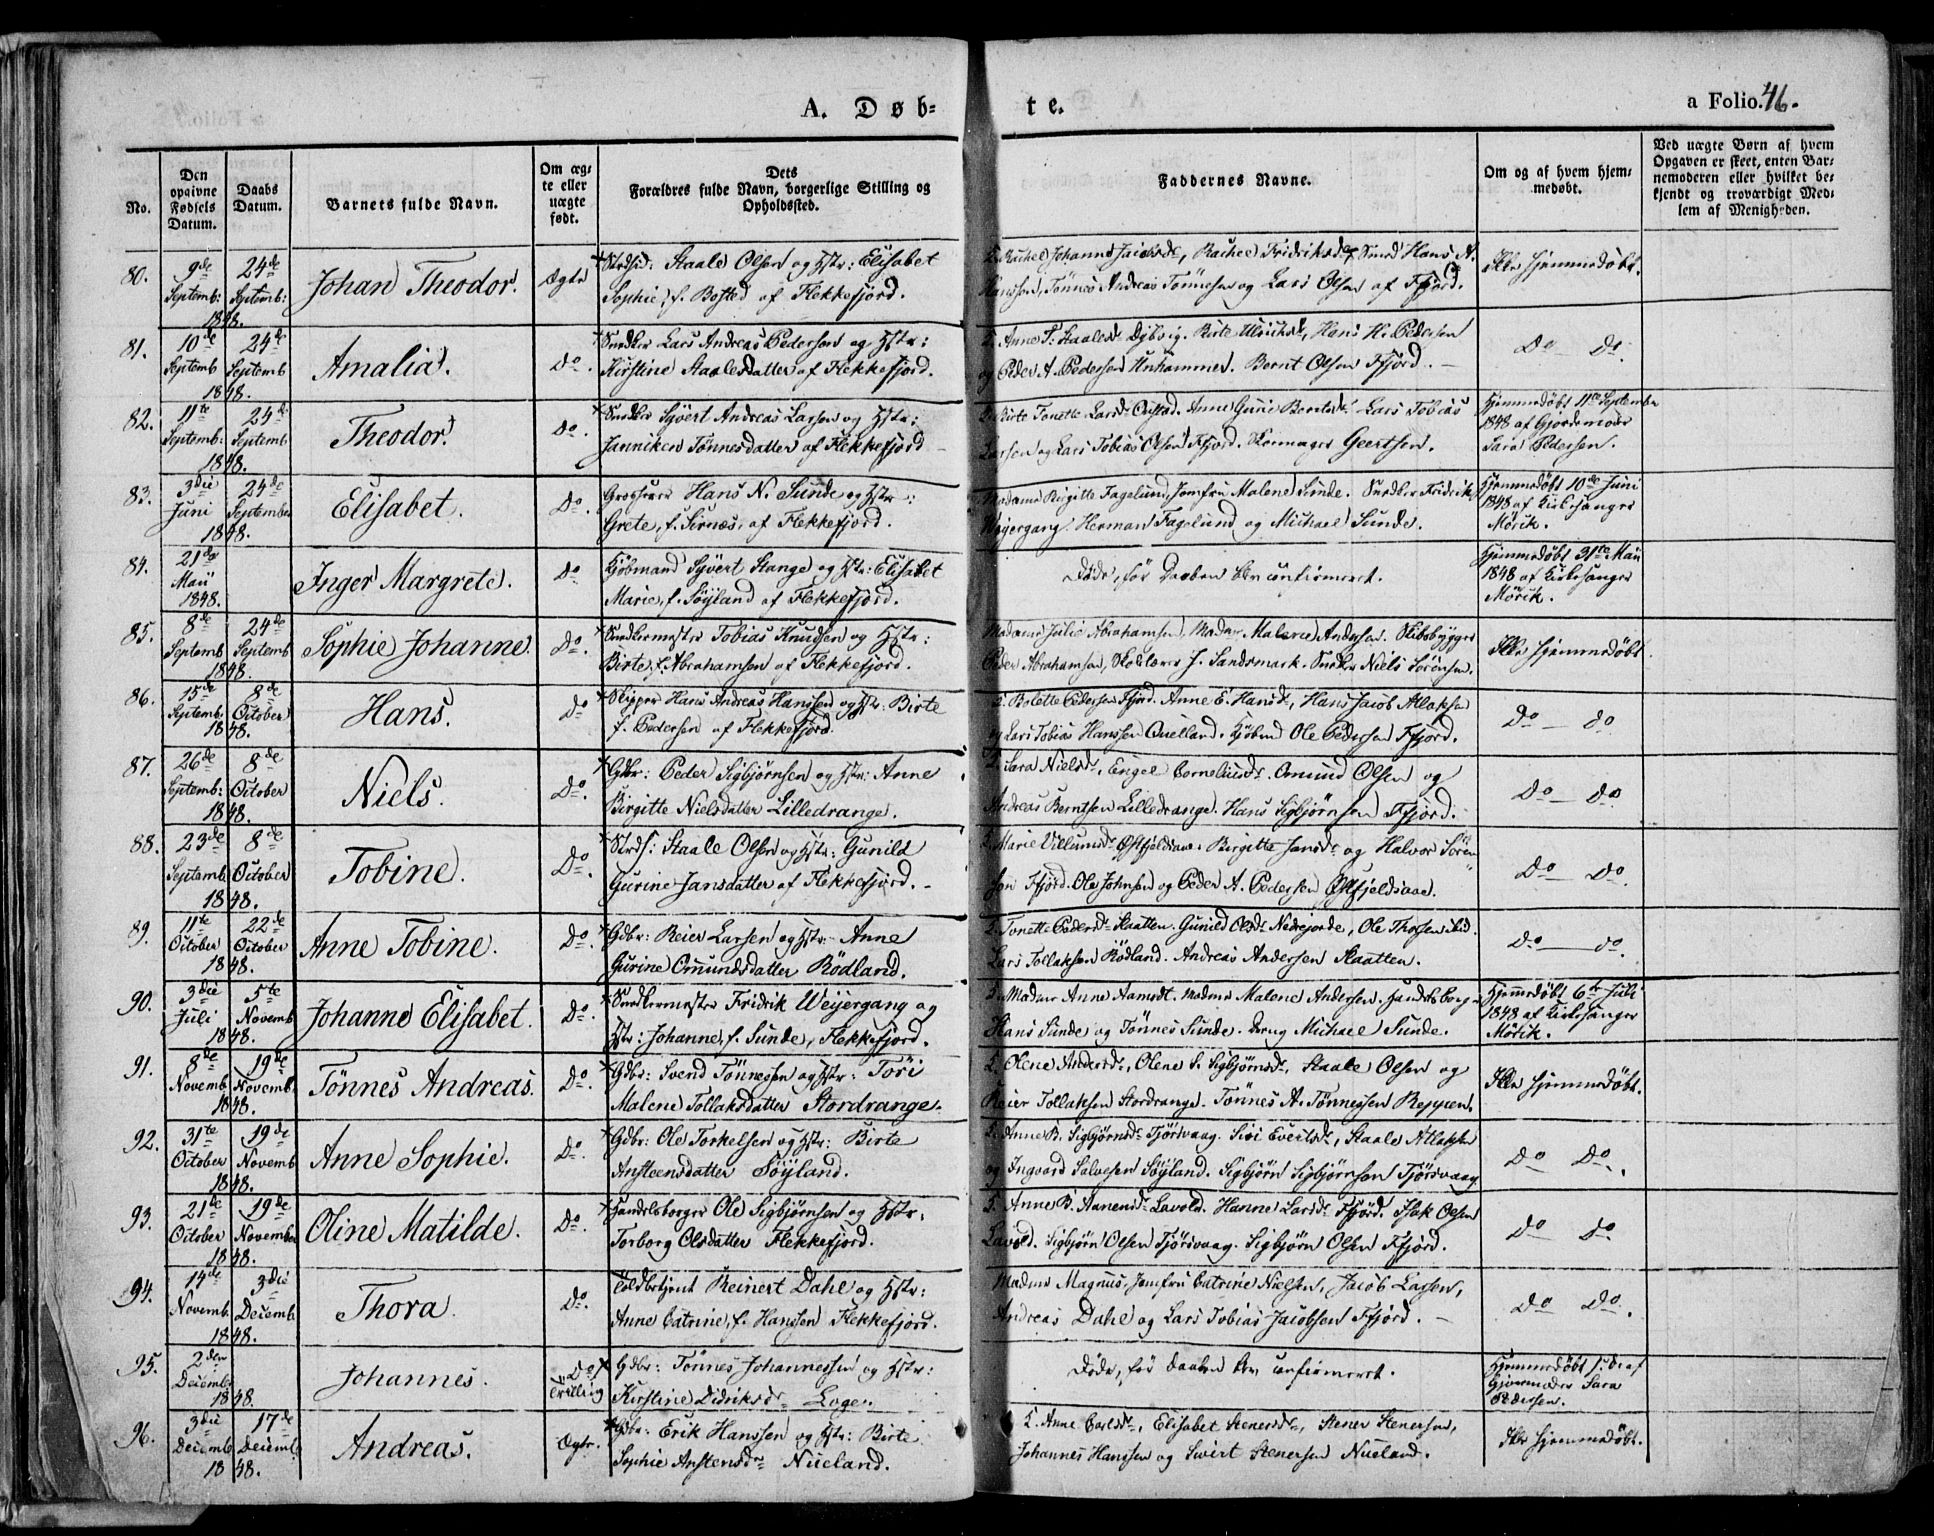 A. Døb-
te.
a Folio. 46.
No.
Den
opgivne
Fødsels
Datum.
Daabs
Datum.
Barnets fulde Navn.
Om æg-
te eller
uægte
født.
Dets
Forældres fulde Navn, borgerlige Stilling og
Opholdssted.
Faddernes Navne.
Om og af hvem hjem-
medøbt.
Ved uægte Børn af hvem
Opgaven er skeet, enten Bar-
nemoderen eller hvilket be-
kjendt og troværdigt Med-
lem af Menigheden.
80.
9de
Septemb:
1848.
24de
Septemb:
Johan Theodor.
Ægte
Staale Olsen og Hstr: Elisabet
Sophie, f. Bosted af Flekkefjord.
Johanne Jacobsdr, Rachel Fridriksdr, Smed Hans A.
Hanssen, Tönnes Andreas Tönnesen og Lars Olsen af Ffjord.
Ikke hjemmedøbt.
81.
10de
Septemb
1848.
24de
Septemb
Amalia.
Do.
Snedker Lars Andreas Pedersen og Hstr:
Kirstine Staalesdatter af Flekkefjord.
Anne S. Staalesdr Dybvig. Birte Ulrichsdr, Hans H. Pedersen
og Peder A. Pedersen Unhammer. Bernt Olsen Ffjord. —
Do — Do.
82.
11te
Septemb:
1848.
24de
Septemb
Theodor.
Do.
Snedker Syvert Andreas Larsen og Hstr:
Janniken Tönnesdatter af Flekkefjord
Birte Tonette Larsdr. Anne Gurie Berntsdr. Lars Tobias
Larsen og Lars Tobias Olsen Ffjord. Skomager Geertsen.
Hjemmedøbt 11te September
1848 af Gjordemoder
Sara Pedersen.
83.
3die
Juni
1848.
24de
September
Elisabet.
Do.
Hans N. Sunde og Hstr:
Grete, f. Sirnæs, af Flekkefjord.
Madame Birgitte Fagelund, Jomfru Malene Sunde. Snedker Fridrik
Weyergang, Herman Fagelund og Michael Sunde.
Hjemmedøbt 10de Juni
1848 af Kirkesanger
Mörik.
84.
21de
Maii
1848.
Inger Margrete.
Do
Kjöbmand Syvert Stange og Hstr: Elisabet
Marie, f. Söyland af Flekkefjord.
Døde, før Daaben blev confirmeret.
Hjemmedøbt 31te Maii
1848 af Kirkesanger
Mörik.
85.
8de
Septemb
1848.
24de
Septemb
Sophie Johanne.
Do.
Snedkermester Tobias Knudsen og Hstr:
Birte, f. Abrahamsen af Flekkefjord.
Madame Julie Abrahamsen, Madme Malene Andersen. Skibsbygger
Peder Abrahamsen, Skolelærer J. Sandsmark. Snedker Niels Sörensen.
Ikke hjemmedøbt
86.
15de
Septemb.
1848.
8de
October
Hans.
Do
Skipper Hans Andreas Hanssen og Hstr. Birte
f. Pedersen af Flekkefjord.
Bolette Pedersen Ffjord. Anne E. Hansdr, Hans Jacob Atlaksen
og Lars Tobias Hanssen Quelland. Kjöbmd Ole Pedersen Ffjord.
Do — do.
87.
26de
Septemb:
1848.
8de
October
Niels.
Do.
Gdbr: Peder Sigbjörnsen og Hstr: Anne
Birgitte Nielsdatter Lilledrange.
Sara Nielsdr, Engel Corneliusdr. Omund Olsen og
Andreas Berntsen Lilledrange. Hans Sigbjörnsen Ffjord.
Do — Do
88.
23de
Septemb
1848.
8de
October
Tobine.
Do.
Staale Olsen og Hstr: Gunild
Gurine Jansdatter af Flekkefjord. -
Marie Villumsdr Østfjeldsaae. Birgitte Jansdr og Halvor Sören-
sen Ffjord. Ole Johnsen og Peder A. Pedersen Østfjeldsaae.
Do — Do.
89.
11te
October
1848.
22de
October
Anne Tobine.
Do.
Gdbr: Reier Larsen og Hstr: Anne
Gurine Omundsdatter Rödland.
Tonette Pedersdr Slaatten. Gunild Olsdr Nedrejorde, Ole Thorsen ibid.
Lars Tollaksen Rödland. Andreas Andersen Slaatten.
Do — do
90.
3die
Juli
1848.
5te
Novemb
Johanne Elisabet.
Do.
Snedkermester Fridrik Weyergang og
Hstr: Johanne, f. Sunde, Flekkefjord.
Madme Anne Aamodt. Madme Malene Andersen. Handelsborg-
Hans Sunde og Tönnes Sunde. Michael Sunde.
Hjemmedøbt 6te Juli
1848 af Kirkesanger
Mörik.
91.
8de
Novemb
1848.
19de
Novemb.
Tönnes Andreas.
Do.
Gdbr: Svend Tönnesen og Hstr: Töri
Malene Tollaksdatter Stordrange.
Olene Andersdr, Olene S. Sigbjörnsdr, Staale Olsen og
Reier Tollaksen Stordrange. Tönnes A. Tönnessen Reppen.
Ikke hjemmedøbt.
92.
31te
October
1848.
19de
Novemb
Anne Sophie.
Do.
Gdbr: Ole Torkelsen og Hstr: Birte
Anstensdatter Söyland.
Anne B. Sigbjörnsdr Tjörsvaag. Siri Evertsdr, Staale Atlaksen
og Ingvard Salvesen Söyland. Sigbjörn Sigbjörnsen Tjörsvaag
Do Do.
93.
21de
October
1848.
19de
November
Oline Matilde.
Do.
Handelsborger Ole Sigbjörnsen og Hstr:
Torborg Olsdatter Flekkefjord.
Anne B. Aanensdr Lavold. Hanne Larsdr Ffjörd. Isak Olsen
Lavold. Sigbjörn Olsen Tjörsvaag. Sigbjörn Olsen Ffjord.
Do do
94.
14de
Novemb.
1848.
3die
Decemb
Thora.
Do.
Toldbetjent Reinert Dahl og Hstr:
Anne Catrine, f. Hanssen Flekkefjord.
Madme Magnus, Jomfru Catrine Nielsen, Jacob Larsen,
Andreas Dahl og Lars Tobias Jacobsen Ffjord. —
Do Do.
95.
2den
Decemb.
1848.
Johannes.
Do
Tvilling
Gdbr: Tönnes Johannessen og Hstr:
Kirstine Didriksdr Loge.
Døde, før Daaben blev confirmeret.
Hjemmedøbt s: D: af
Gjordemoder Sara
Pedersen.
96.
3die
Decemb
1848.
17de
Decemb
Andreas.
Ægte.
Gdbr: Erik Hanssen og Hstr: Birte
Sophie Anstensdr Nueland.
Anne Carlsdr, Elisabet Stenersdr, Stener Stenersen,
Johannes Hanssen og Sivert Stenersen Nueland.
Ikke hjemmedøbt.